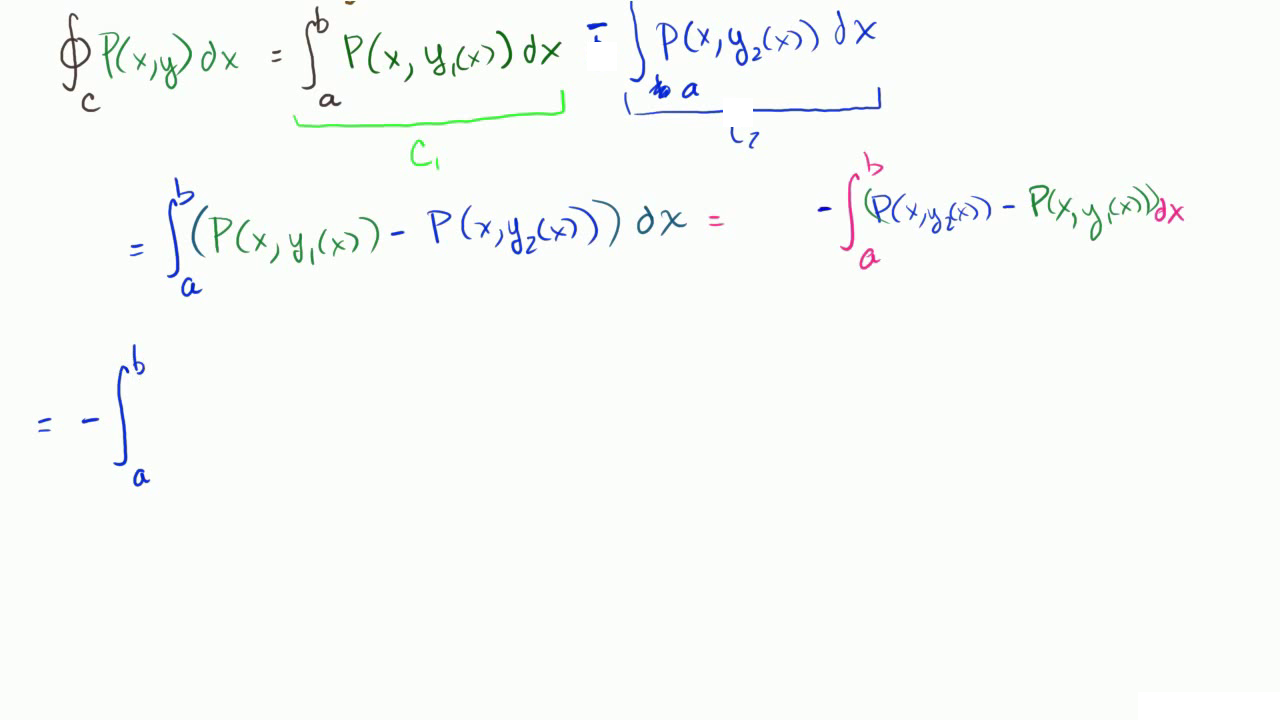 ∮_C P(x,y)dx = ∫_a^b P(x, y₁(x))dx - ∫_a P(x,y₂(x)) dx
C₁ C₂
= ∫_a^b (P(x, y₁(x)) - P(x,y₂(x))) dx = - ∫_a^b (P(x,y₂(x)) - P(x,y₁(x)))dx
= - ∫_a^b